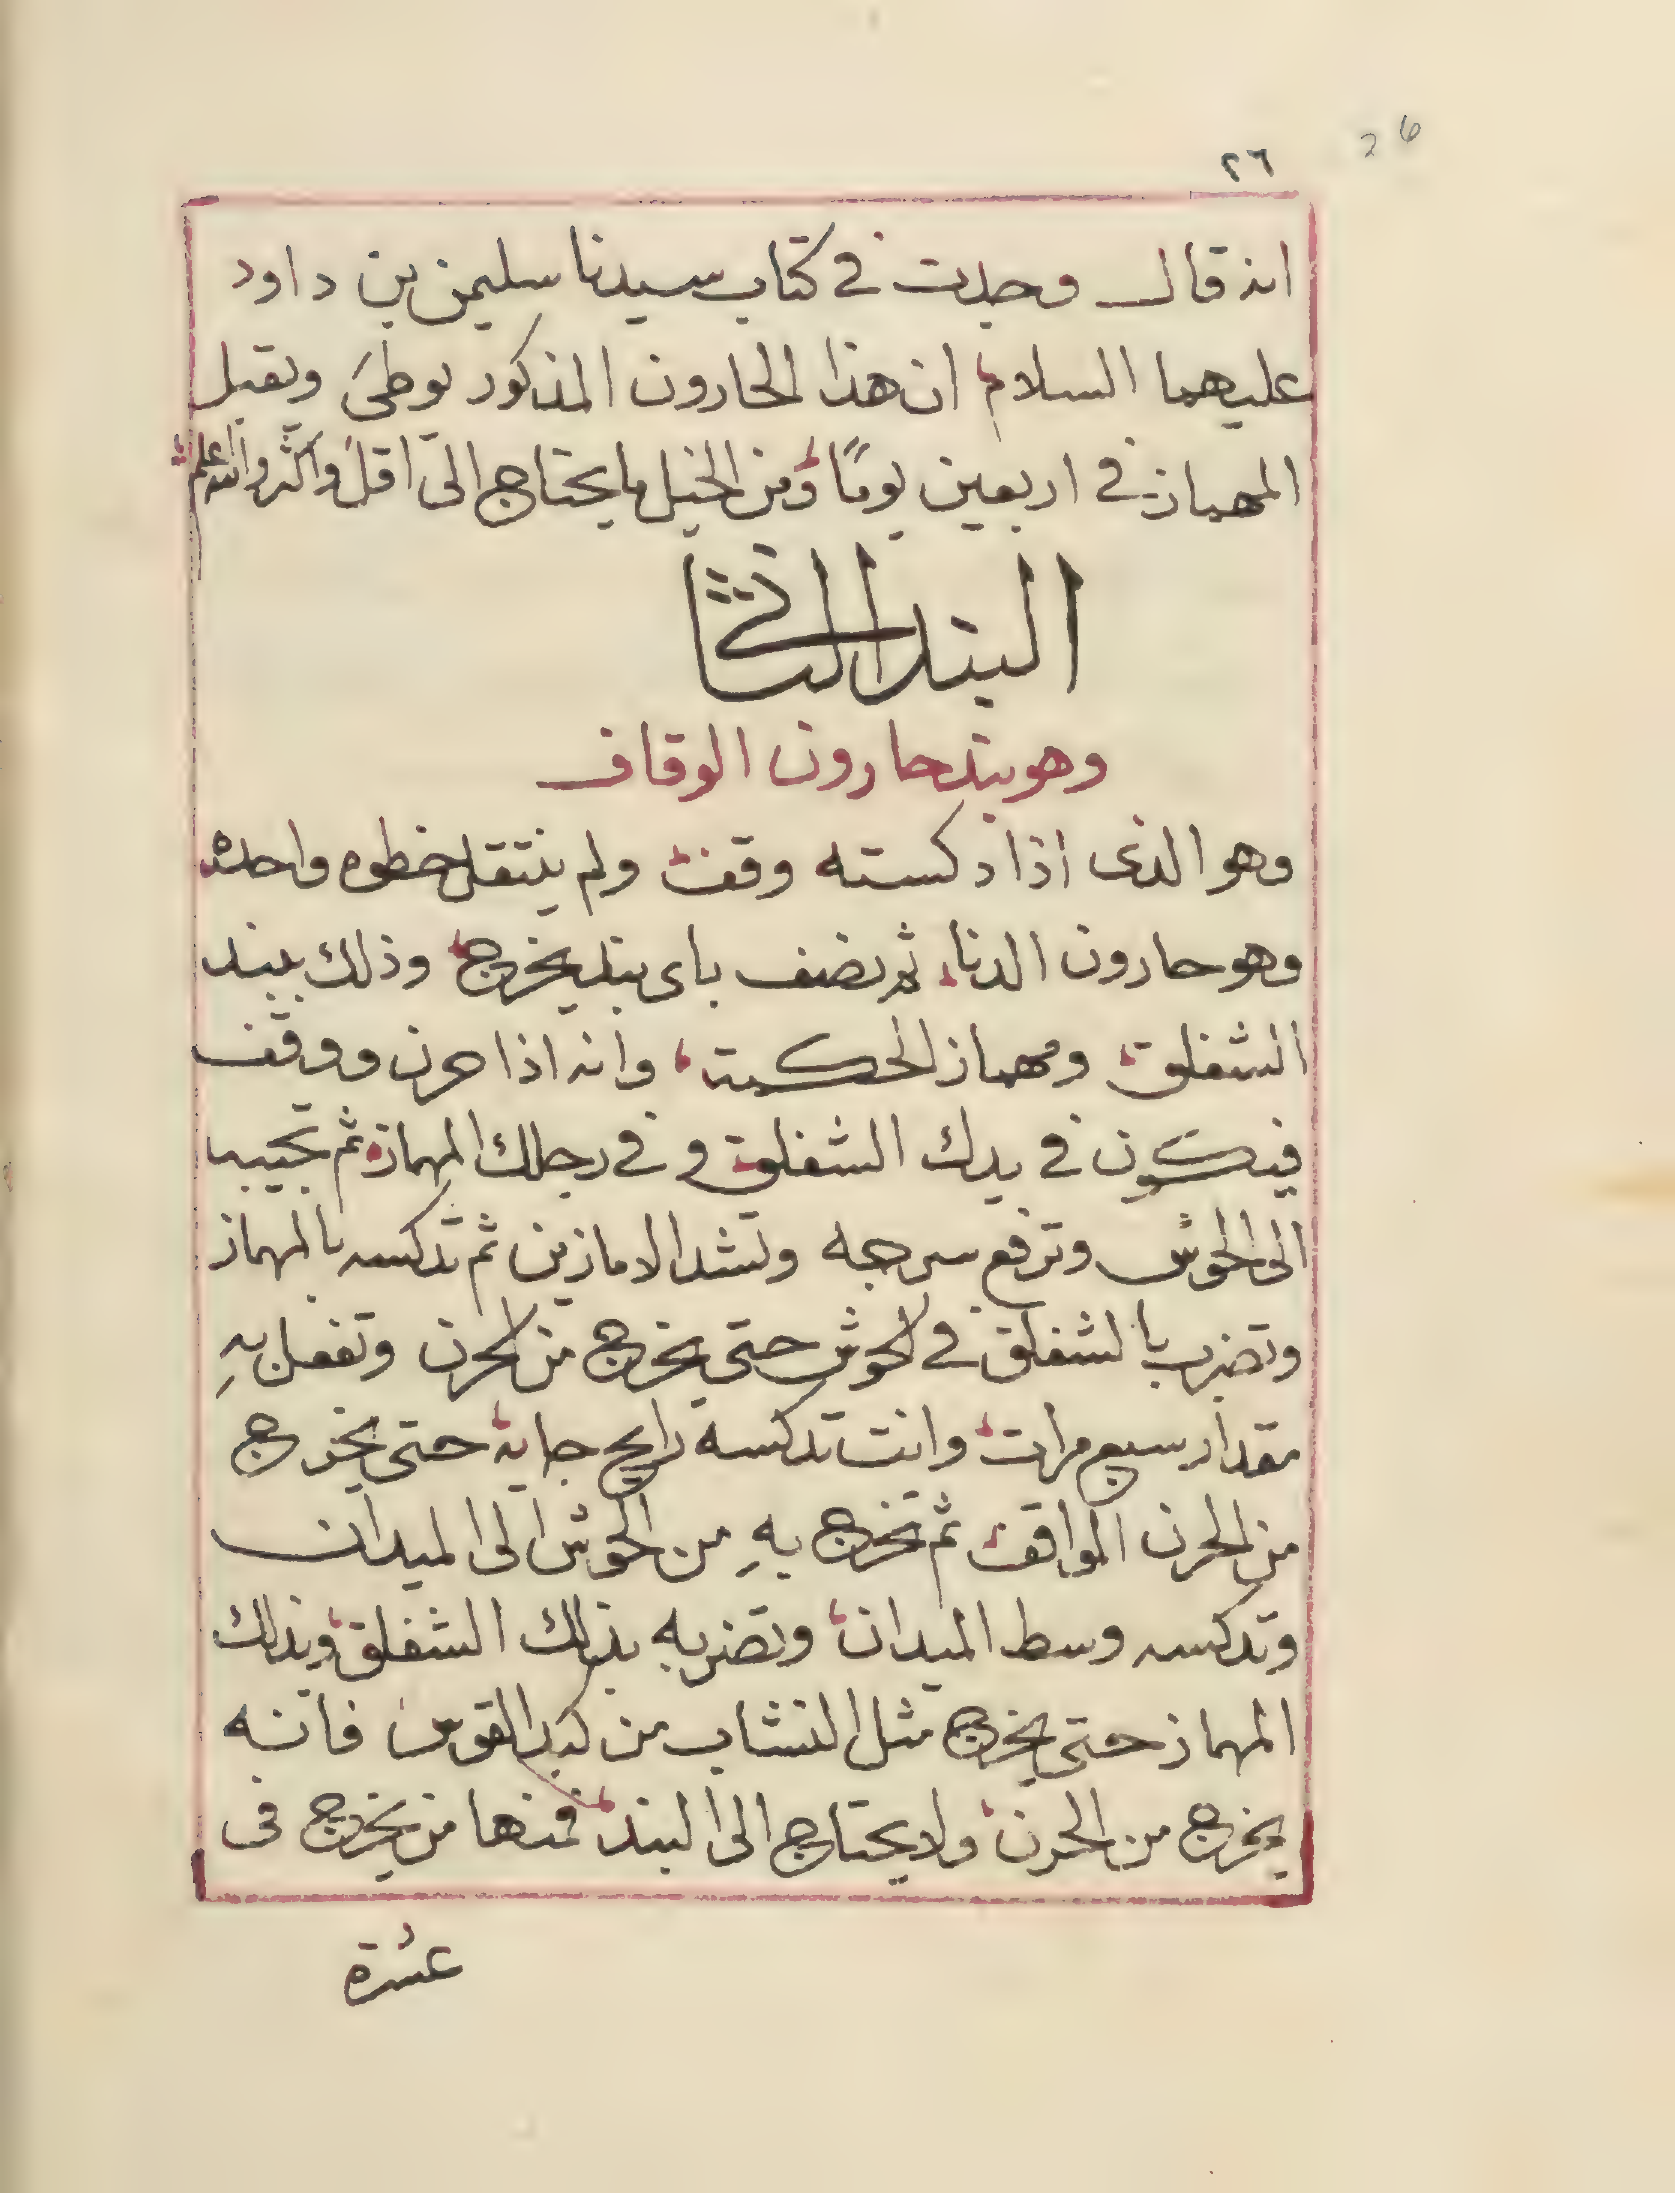 26
٢٦
انه قال وجدت في كتاب سيدنا سليمن بن داود
عليهما السلام ان هذا الحارون المذكور يوطئ ويقبل
المهماز في اربعين يومًا ومن الخيل ما يحتاج الى اقل واكثر والله اعلم
البند الثاني
وهو بند حارون الوقاف
وهو الذى اذا دكسته وقف ولم ينتقل خطوه واحده
وهو حارون الدنا ثم نصف باى بند يخرج وذلك ببند
الشفلق ومهماز الحكمة وانه اذا حرن ووقف
فيكون في يدك الشفلق وفي رجلك المهماز ثم تجيبه
الى الحوش وترفع سرجه وتشد الامازين ثم تدكسه بالمهماز
وتضرب بالشفلق في الحوش حتى يخرج من الحرن وتفعل بهِ
مقدار سبع مرات وانت تدكسه رايح جايه حتى يخرج
من الحرن الواقف ثم تخرج بهِ من الحوش الى الميدان
وتدكسه وسط الميدان وتضربه بذلك الشفلق وبذلك
المهماز حتى يخرج مثل النشاب من كبد القوس فانه
يخرج من الحرن ولا يحتاج الى البند فمنها من يخرج فى
عشرة